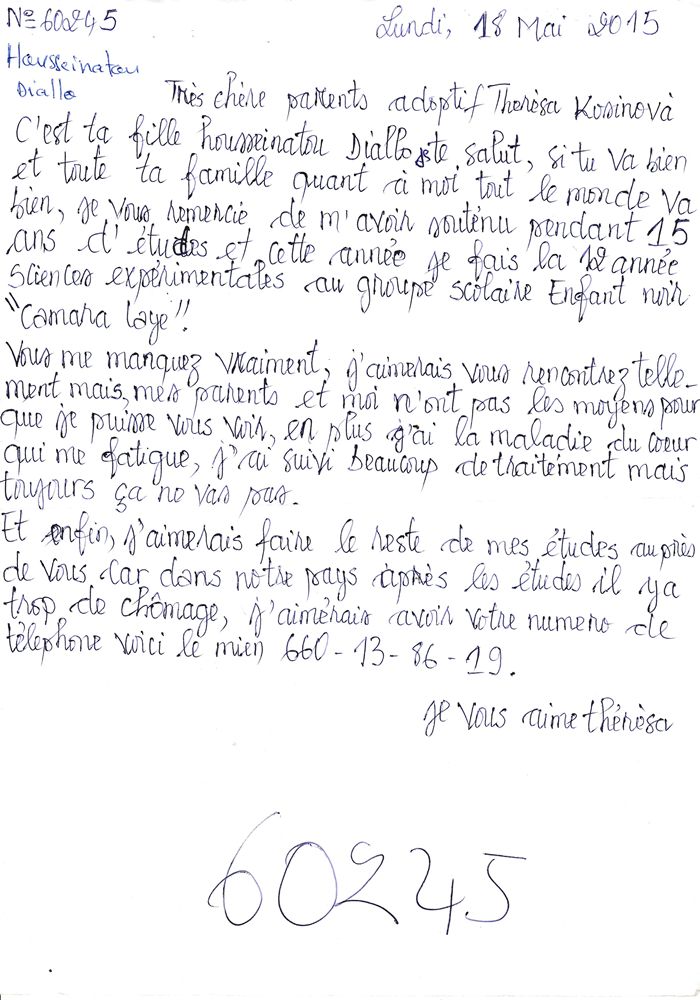 N° 60245
Lundi, 18 Mai 2015
Housseinatou
Diallo
Très chère parents adoptif Therèsa Kosinovà
C'est ta fille housseinatou Diallo te salut, si tu va bien
et toute ta famille quant à moi tout le monde va
bien, je vous remercie de m'avoir soutenu pendant 15
ans d'études et cette année je fais la 12 année
Sciences expérimentales au groupe scolaire Enfant noir
"Camara laye"!
Vous me manquez vraiment, j'aimerais vous rencontrez telle-
ment mais, mes parents et moi n'ont pas les moyens pour
que je puisse vous voir, en plus j'ai la maladie du coeur
qui me fatigue, j'ai suivi beaucoup de traitement mais
toujours ça no vas pas.
Et enfin, j'aimerais faire le reste de mes études auprès
de vous car dans notre pays àprès les études il ya
trop de chômage, j'aimerais avoir votre numero de
télephone voici le mien 660-13-86-19.
je vous aime thérèsa
60245